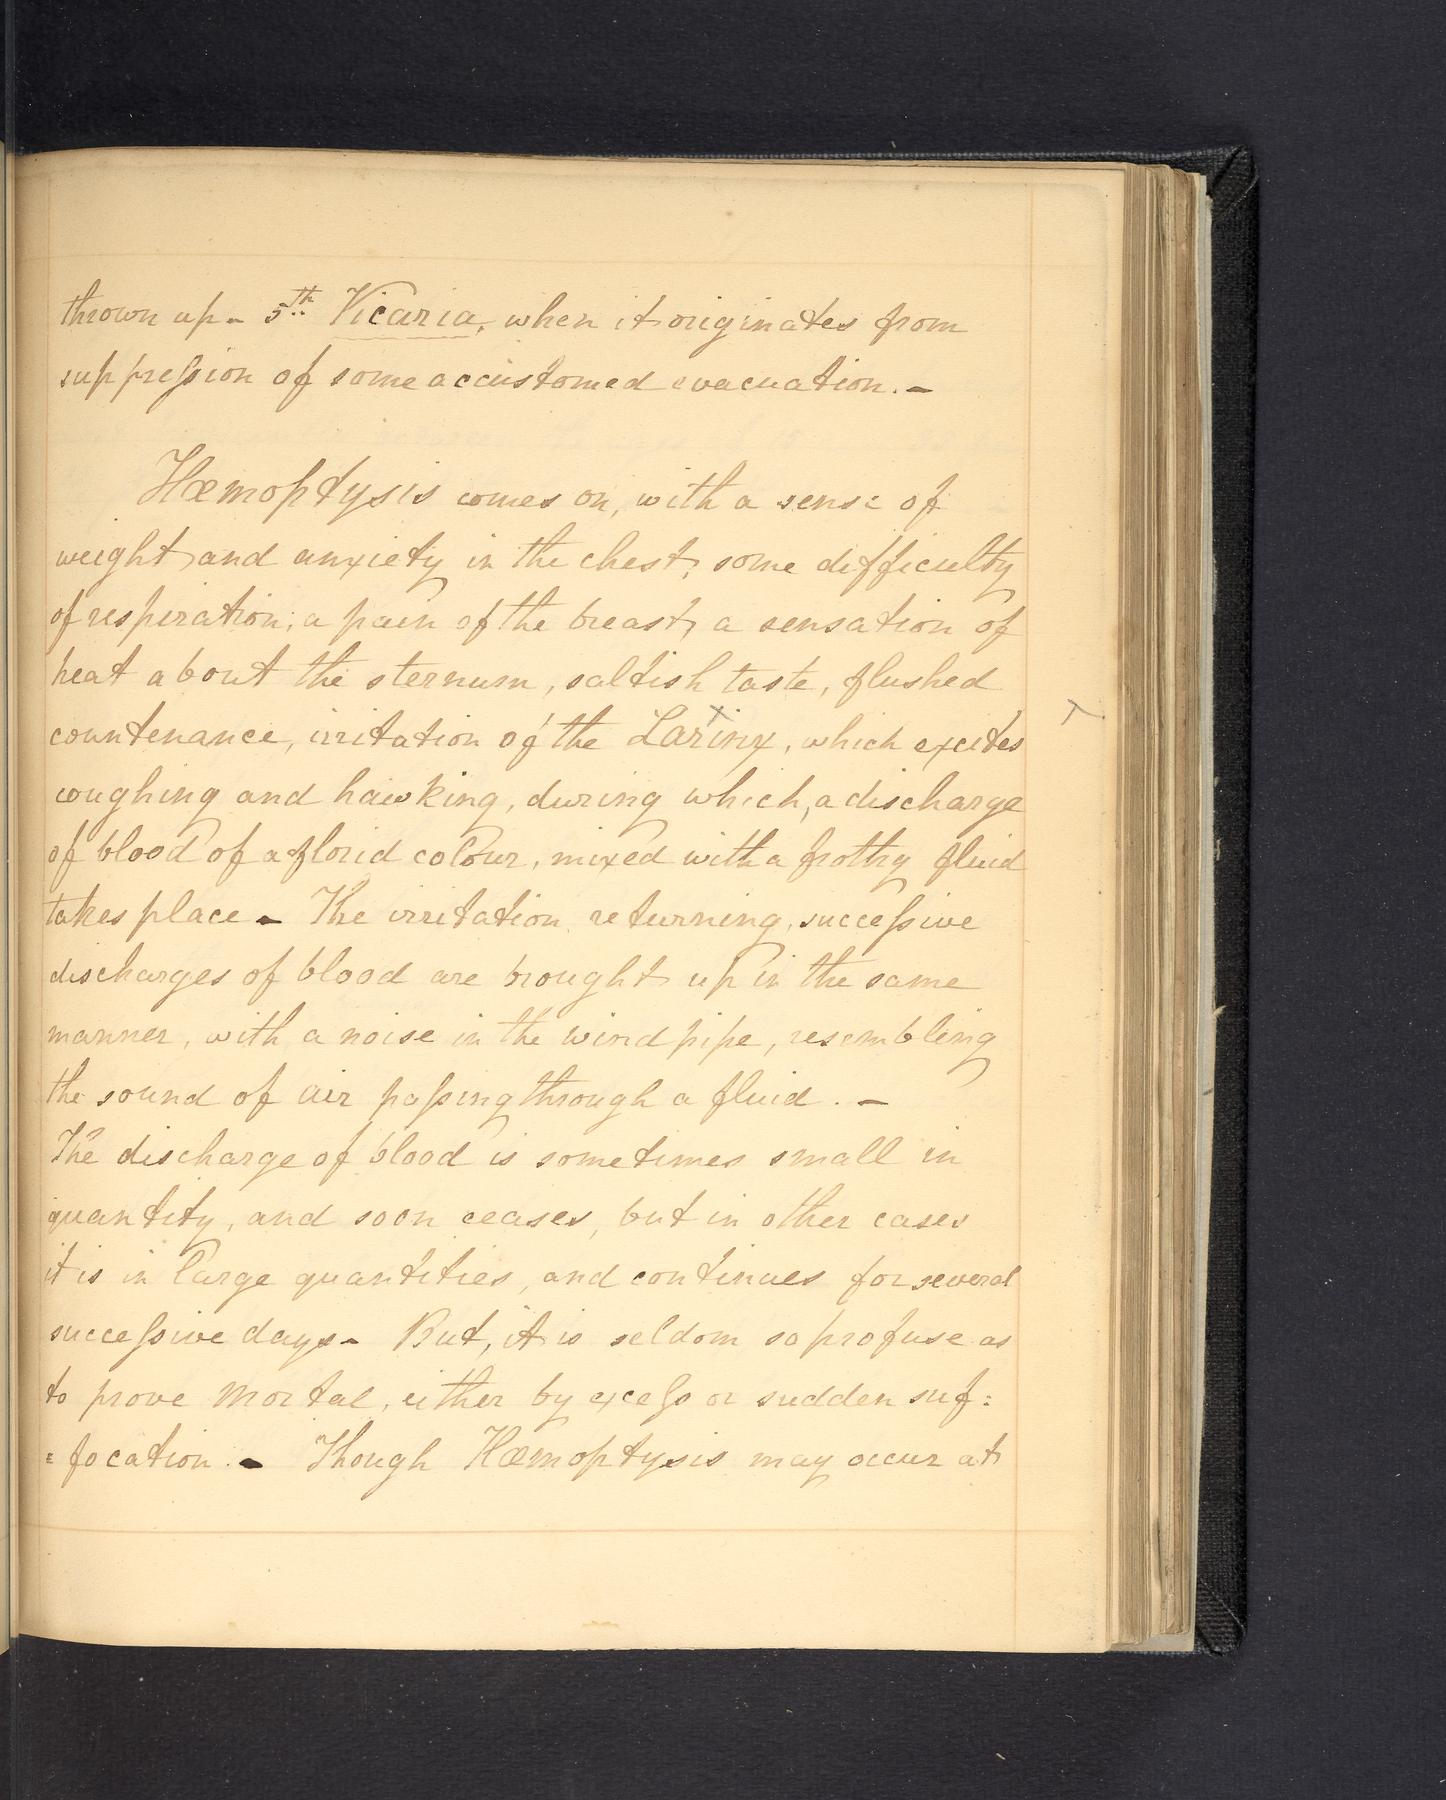 thrown up - 5th Vicaria, when it originates from
suppreſsion of some accustomed evacuation. -
Hæmoptysis comes on, with a sense of
weight and anxiety in the chest; some difficulty
of respiration; a pain of the breast, a sensation of
heat about the sternum, saltish taste, flushed
countenance, irritation of the Larinx, which excites
coughing and hawking, during which, a discharge
of blood of a florid colour, mixed with a frothy fluid
takes place - The irritation returning, succeſsive
discharges of blood are brought up in the same
manner, with a noise in the wind pipe, resembling
the sound of air paſsing through a fluid. -
The discharge of blood is sometimes small in
quantity, and soon ceases, but in other cases
it is in large quantities, and continues for several
succeſsive days - But, it is seldom so profuse as
to prove mortal, either by exceſs or sudden suf=
=focation. - Though Hæmoptysis may occur at